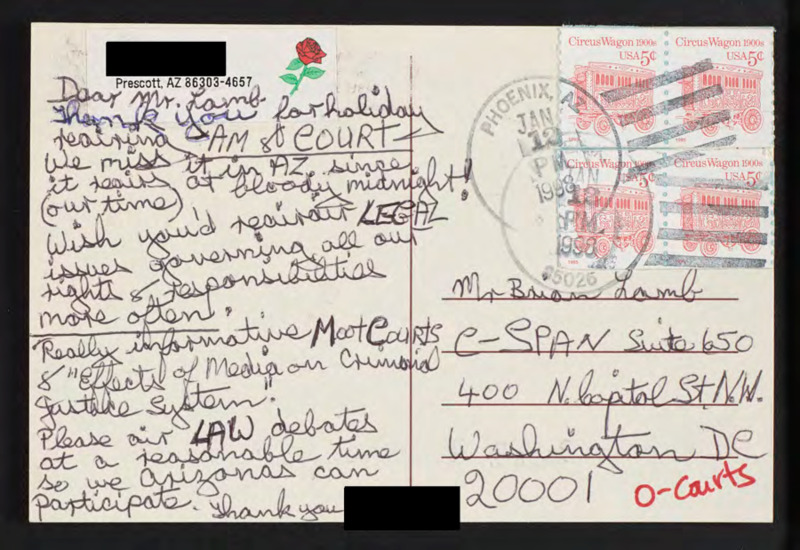 Prescott, AZ 86303-4657
Dear Mr. Lamb
Thank you for holiday
repairing AM & COURT
We miss it in AZ, since
it reairs at bloody midnight!
(our time)
Wish you'd reair LEGAL
issues governing all our
rights & responsibilities
more often.
Really informative Moot Courts
& "Effects of Media on Criminal
Justice System."
Please air LAW debates
at a reasonable time
so we Arizonas can
participate. Thank you
Circus Wagon 1900s
USA 5¢
Circus Wagon 1900s
USA 5¢
Circus Wagon 1900s
USA 5¢
Circus Wagon 1900s
USA 5¢
PHOENIX, AZ
JAN
12
PM
1998
JAN
12
PM
1998
85026
Mr Brian Lamb
C-SPAN Suite 650
400 N. Capitol St N.W.
Washington DC
20001
O-Courts